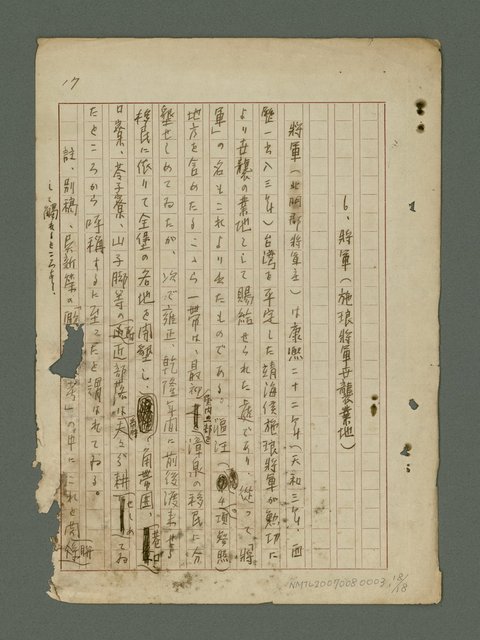 17
6、將軍(施琅將軍世襲業地)
將軍(北門郡將軍庄)は康熙二十二年(天和三年、西
歷一六八三年)台灣を平定した靖海侯施琅將軍が勲功に
より世襲の業地として賜給せられた處であり、從って「將
軍」の名もこれより出たものである。漚汪(4項參照)
地方を含めたこゝら一帶は、最初漳泉の移民に分
墾せしめてゐたが、次で雍正、乾隆年間に前後渡來せし
移民に依りて全堡の各地を開墾し、角帶圍、
口寮、苓子寮、山子腳等の附近部落は夫々分耕せしめてゐ
たところから呼稱するに至ったと謂はれてゐる。
註、別稿、吳新榮の の中にこれと關聯
して觸れるところあり。
NMTL20070080003 18/18